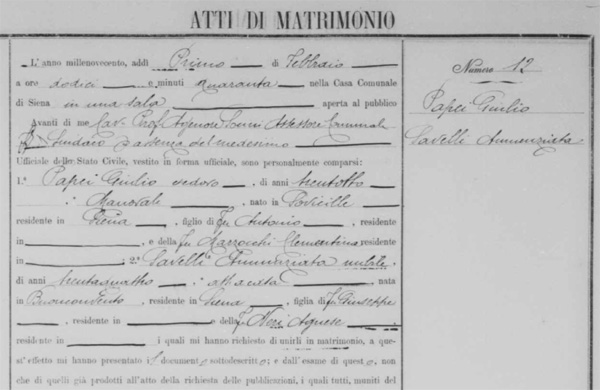 ATTI DI MATRIMONIO
L'anno millenovecento, addì Primo di Febbraio
a ore dodici e minuti quaranta nella Casa Comunale
di Siena in una sala aperta al pubblico
Avanti di me Cav. Prof. Agenore Socini Assessore Comunale
Sindaco assenza del medesimo
Ufficiale dello Stato Civile, vestito in forma ufficiale, sono personalmente comparsi:
1.° Papei Giulio vedovo, di anni trentotto
Manovale, nato in Sovicille
residente in Siena, figlio di fu Antonio, residente
in, e della fu Marrocchi Clementina residente
in; 2.° Lavelli Annunziata nubile
di anni trentaquattro, att. a casa nata
in Buonconvento, residente in Siena, figlia di fu Giuseppe
, residente in e della fu Neri Agnese,
residente in i quali mi hanno richiesto di unirli in matrimonio, a que-
st'effetto mi hanno presentato il document o sottodescritto; e dall'esame di quest o, non
che di quelli già prodotti all'atto della richiesta delle pubblicazioni, i quali tutti, muniti del
Numero 12
Papei Giulio
Lavelli Annunziata